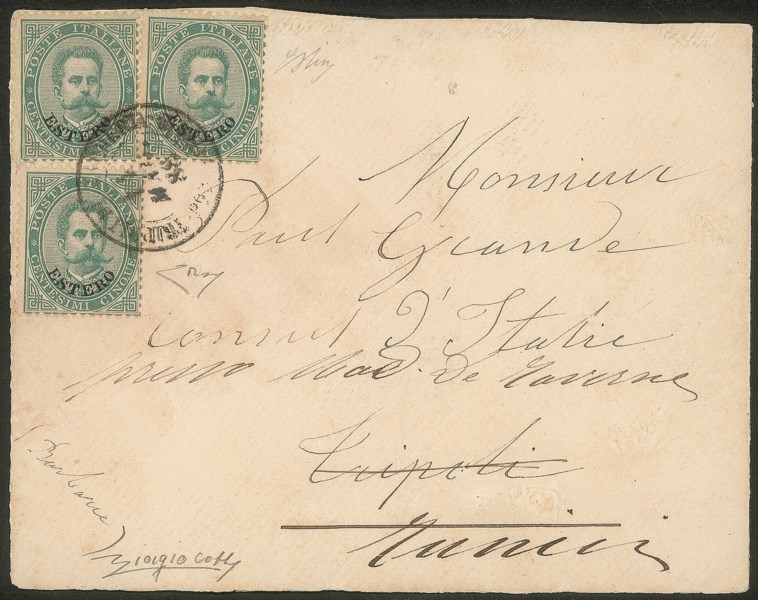 POSTE ITALIANE
ESTERO
CENTESIMI CINQUE
POSTE ITALIANE
ESTERO
CENTESIMI CINQUE
POSTE ITALIANE
ESTERO
CENTESIMI CINQUE
Monsieur
Paul Grande
Consul d'Italie
presso Mad. De Taverne
Tripoli
Tunisi
(Barbarie)